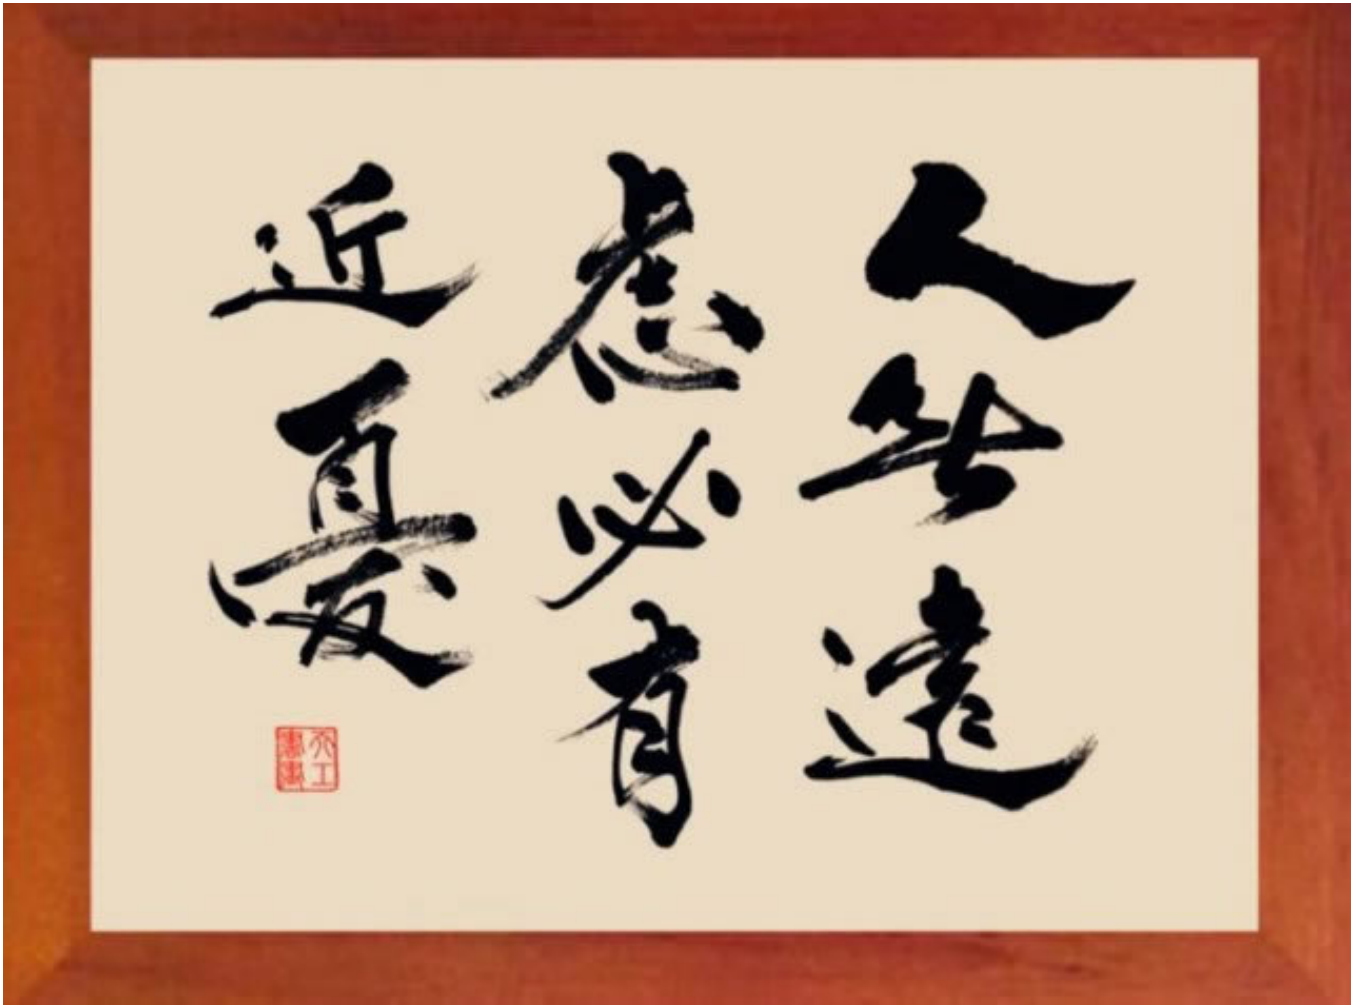 人無遠
慮必有
近憂